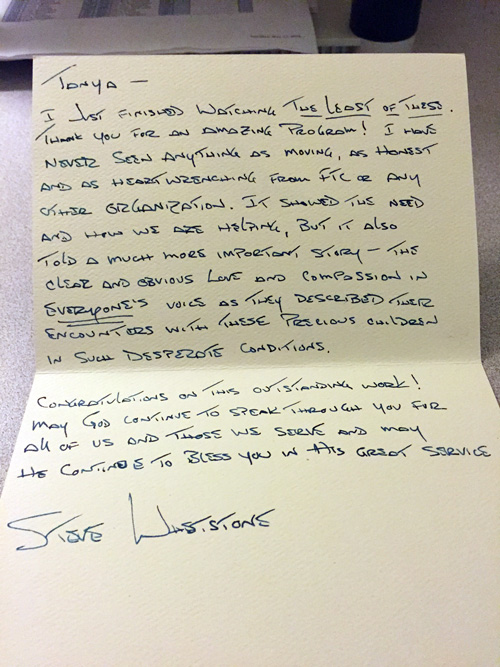 Tanya —
I just finished watching The Least of These.
Thank you for an amazing program! I have
never seen anything as moving, as honest
and as heart wrenching from FTC or any
other organization. It showed the need
and how we are helping, but it also
told a much more important story — the
clear and obvious love and compassion in
everyone's voice as they described their
encounters with these precious children
in such desperate conditions.
Congratulations on this outstanding work!
May God continue to speak through you for
all of us and those we serve and may
He continue to bless you in His great service
Steve